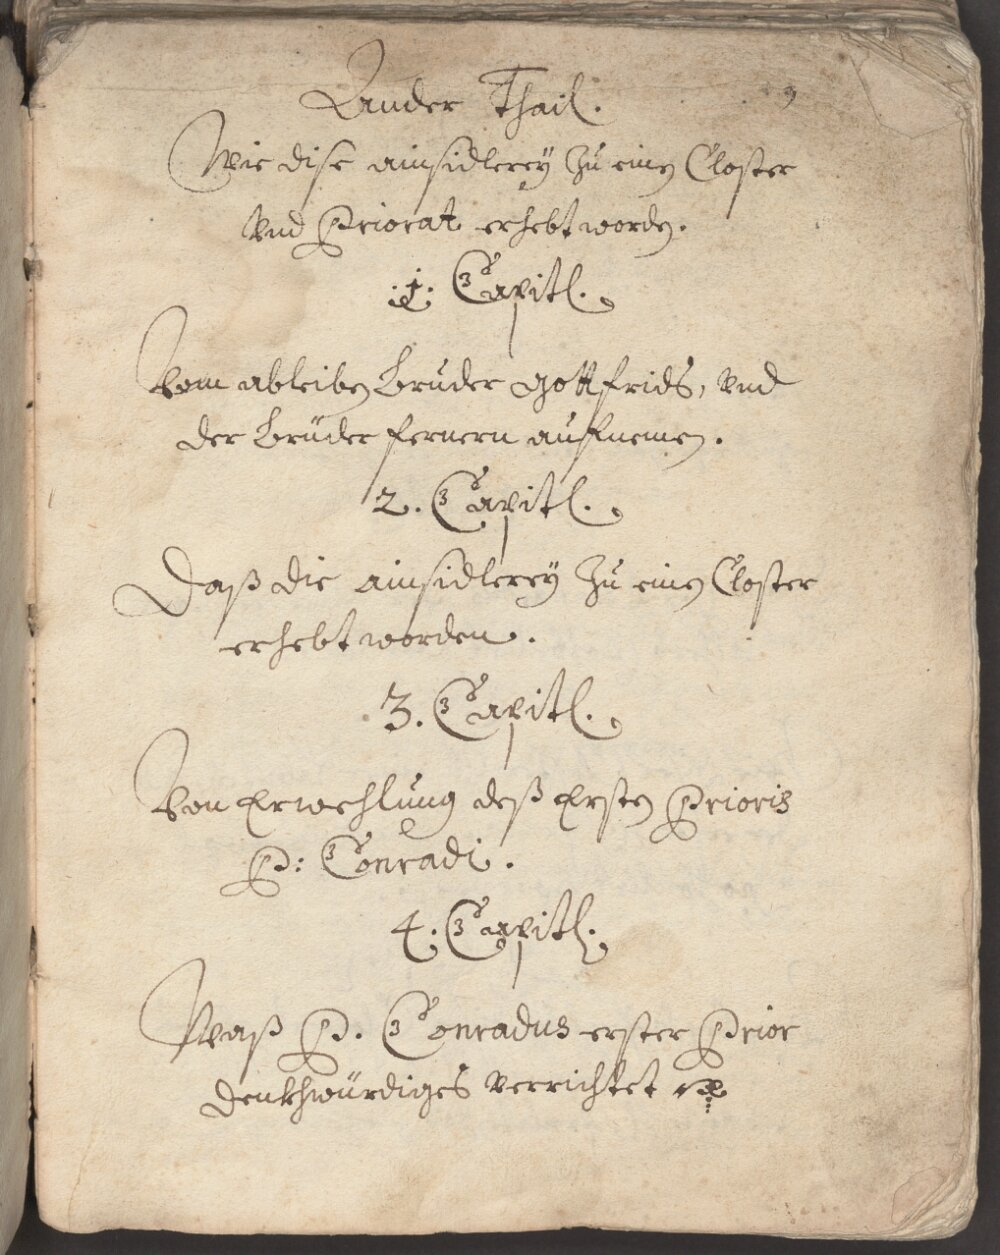 Ander Thail.
Wie dise ainsidlerey zu einem Closter
vnd Priorat erhebt worden.
.1. Capitl.
Vom ableiben Bruder gottfrids, vnd
der Brüder fernern aufnemen.
2. Capitl.
Daß die ainsidlerey zu einem Closter
erhebt worden.
3. Capitl.
Von Erwehlung deß Ersten Prioris
P: Conradi.
4. Capitl.
Waß P. Conradus erster Prior
denkhwürdiges verrichtet